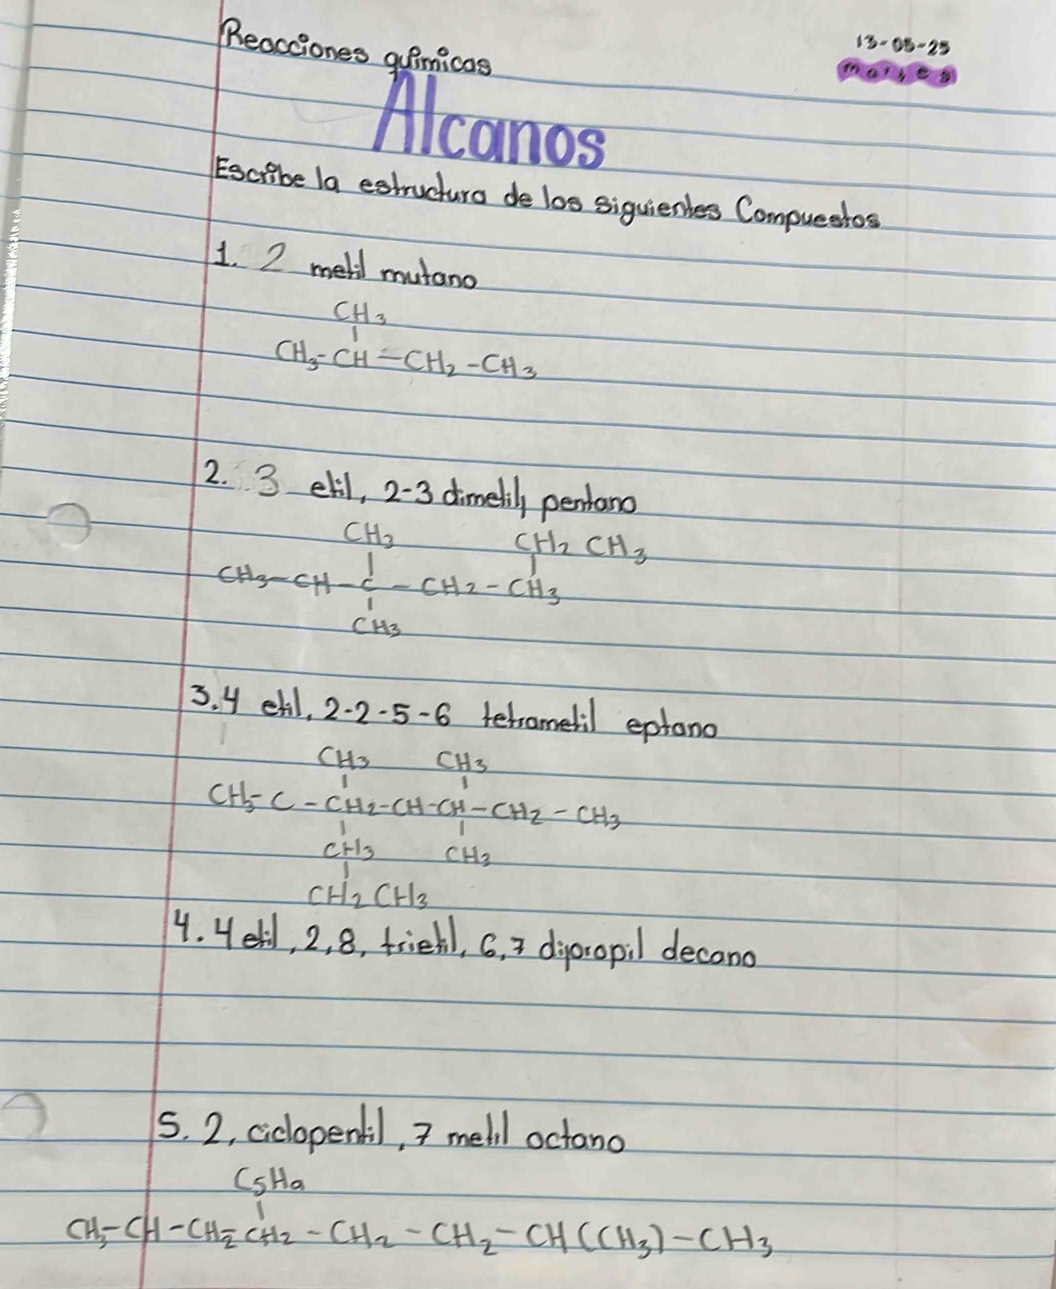 Reacciones químicas
13-05-25
martes
Alcanos
Escribe la estructura de los siguientes Compuestos
1. 2 metil mutano
CH3
CH3-CH-CH2-CH3
2. 3 etil, 2-3 dimetil, pentano
CH3 CH2 CH3
CH3-CH-C-CH2-CH3
CH3
3. 4 etil, 2-2-5-6 tetrametil eptano
CH3 CH3
CH3-C-CH2-CH-CH-CH2-CH3
CH3 CH3
CH2 CH3
4. 4 etil, 2,8, trietil, 6,7 dipropil decano
5. 2, ciclopentil, 7 metil octano
C5H9
CH3-CH-CH2-CH2-CH2-CH2-CH(CH3)-CH3